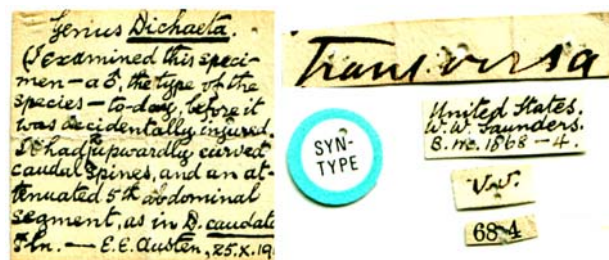 Genus Dichaeta.
(I examined this speci-
men – a ♂, the type of the
species – to-day, before it
was accidentally injured.
It had upwardly curved
caudal spines, and an at-
tenuated 5th abdominal
segment, as in D. caudata
Fln. — E.E. Austen, 25.X.19
Transversa
SYN-
TYPE
United States.
W.W. Saunders.
B.M. 1868–4.
68 4